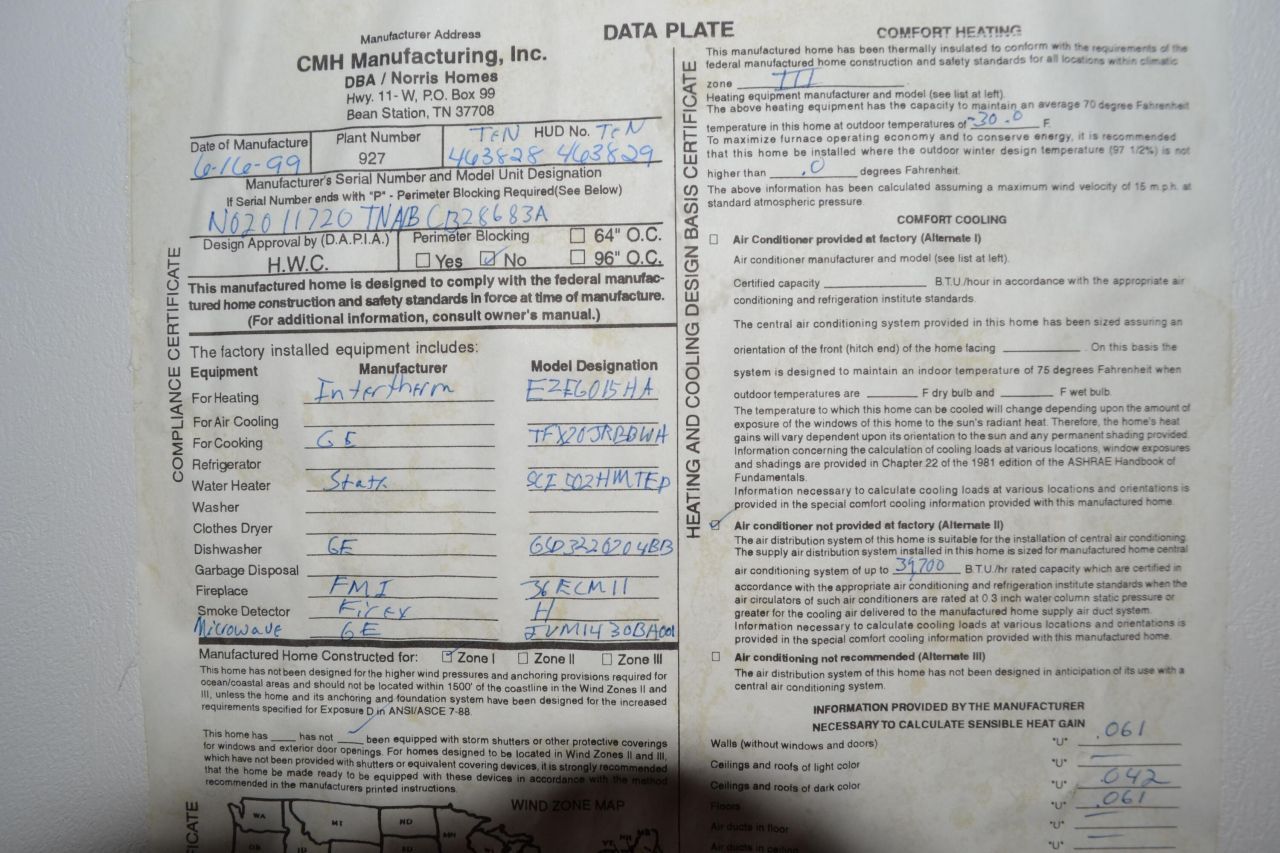 DATA PLATE
Manufacturer Address
CMH Manufacturing, Inc.
DBA / Norris Homes
Hwy. 11- W, P.O. Box 99
Bean Station, TN 37708
Date of Manufacture
6-16-99
Plant Number
927
HUD No.
TEN TEN
463828 463829
Manufacturer's Serial Number and Model Unit Designation
If Serial Number ends with "P" - Perimeter Blocking Required(See Below)
N02011720 TNAB CB28683A
Design Approval by (D.A.P.I.A.)
H.W.C.
Perimeter Blocking
Yes No
64" O.C.
96" O.C.
COMPLIANCE CERTIFICATE
This manufactured home is designed to comply with the federal manufac-
tured home construction and safety standards in force at time of manufacture.
(For additional information, consult owner's manual.)
The factory installed equipment includes:
Equipment Manufacturer Model Designation
For Heating Intertherm EZEG015HA
For Air Cooling
For Cooking GE
Refrigerator
Water Heater State
Washer
Clothes Dryer
Dishwasher GE
Garbage Disposal
Fireplace FMI 36ECM11
Smoke Detector Firex H
Microwave GE JVM1430BA001
Manufactured Home Constructed for: Zone I Zone II Zone III
This home has not been designed for the higher wind pressures and anchoring provisions required for
ocean/coastal areas and should not be located within 1500' of the coastline in the Wind Zones II and
III, unless the home and its anchoring and foundation system have been designed for the increased
requirements specified for Exposure D in ANSI/ASCE 7-88.
This home has ____ has not ____ been equipped with storm shutters or other protective coverings
for windows and exterior door openings. For homes designed to be located in Wind Zones II and III,
which have not been provided with shutters or equivalent covering devices, it is strongly recommended
that the home be made ready to be equipped with these devices in accordance with the method
recommended in the manufacturers printed instructions.
WIND ZONE MAP
WA MT ND MN
HEATING AND COOLING DESIGN BASIS CERTIFICATE
COMFORT HEATING
This manufactured home has been thermally insulated to conform with the requirements of the
federal manufactured home construction and safety standards for all locations within climatic
zone III
Heating equipment manufacturer and model (see list at left).
The above heating equipment has the capacity to maintain an average 70 degree Fahrenheit
temperature in this home at outdoor temperatures of -30.0 F.
To maximize furnace operating economy and to conserve energy, it is recommended
that this home be installed where the outdoor winter design temperature (97 1/2%) is not
higher than .0 degrees Fahrenheit.
The above information has been calculated assuming a maximum wind velocity of 15 m.p.h. at
standard atmospheric pressure.
COMFORT COOLING
Air Conditioner provided at factory (Alternate I)
Air conditioner manufacturer and model (see list at left).
Certified capacity ____ B.T.U./hour in accordance with the appropriate air
conditioning and refrigeration institute standards.
The central air conditioning system provided in this home has been sized assuring an
orientation of the front (hitch end) of the home facing ____ . On this basis the
system is designed to maintain an indoor temperature of 75 degrees Fahrenheit when
outdoor temperatures are ____ F dry bulb and ____ F wet bulb.
The temperature to which this home can be cooled will change depending upon the amount of
exposure of the windows of this home to the sun's radiant heat. Therefore, the home's heat
gains will vary dependent upon its orientation to the sun and any permanent shading provided.
Information concerning the calculation of cooling loads at various locations, window exposures
and shadings are provided in Chapter 22 of the 1981 edition of the ASHRAE Handbook of
Fundamentals.
Information necessary to calculate cooling loads at various locations and orientations is
provided in the special comfort cooling information provided with this manufactured home.
Air conditioner not provided at factory (Alternate II)
The air distribution system of this home is suitable for the installation of central air conditioning.
The supply air distribution system installed in this home is sized for manufactured home central
air conditioning system of up to 39,700 B.T.U./hr rated capacity which are certified in
accordance with the appropriate air conditioning and refrigeration institute standards when the
air circulators of such air conditioners are rated at 0.3 inch water column static pressure or
greater for the cooling air delivered to the manufactured home supply air duct system.
Information necessary to calculate cooling loads at various locations and orientations is
provided in the special comfort cooling information provided with this manufactured home.
Air conditioning not recommended (Alternate III)
The air distribution system of this home has not been designed in anticipation of its use with a
central air conditioning system.
INFORMATION PROVIDED BY THE MANUFACTURER
NECESSARY TO CALCULATE SENSIBLE HEAT GAIN
Walls (without windows and doors) "U" .061
Ceilings and roofs of light color "U"
Ceilings and roofs of dark color "U" .042
Floors "U" .061
Air ducts in floor "U"
Air ducts in ceiling "U"